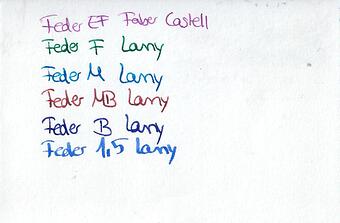 Feder EF Faber Castell
Feder F Lamy
Feder M Lamy
Feder MB Lamy
Feder B Lamy
Feder 1,5 Lamy